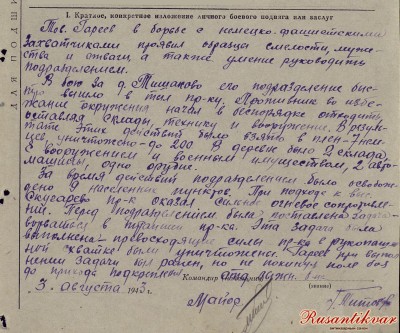 I. Краткое, конкретное изложение личного боевого подвига или заслуг
Тов. Гареев в борьбе с немецко-фашистскими
захватчиками проявил образцы смелости, муже-
ства и отваги, а также умение руководить
подразделением.
В бою за д. его подразделение быс-
тро вышло в тыл пр-ка. Противник во избе-
жание окружения начал в беспорядке отходить,
оставляя склады, технику и вооружение. В резуль-
тате этих действий было взято в плен - 7 нем
цев, уничтожено - до 200. В деревне было 2 склада
с вооружением и военным имуществом, 2 авто-
машины, одно орудие.
За время действий подразделением было освобож-
дено 9 населенных пунктов. При подходе к выс.
пр-к оказал сильное огневое сопротивле-
ние. Перед подразделением была поставлена задача
ворваться в траншеи пр-ка. Эта задача была
выполнена - превосходящие силы пр-ка в рукопашной
схватке были уничтожены. Гареев при выпол-
нении задачи был ранен, но не покинул поле боя
до прихода подкрепления.
Командир
3 августа 1943 г.
Майор
(звание)
Rusantikvar